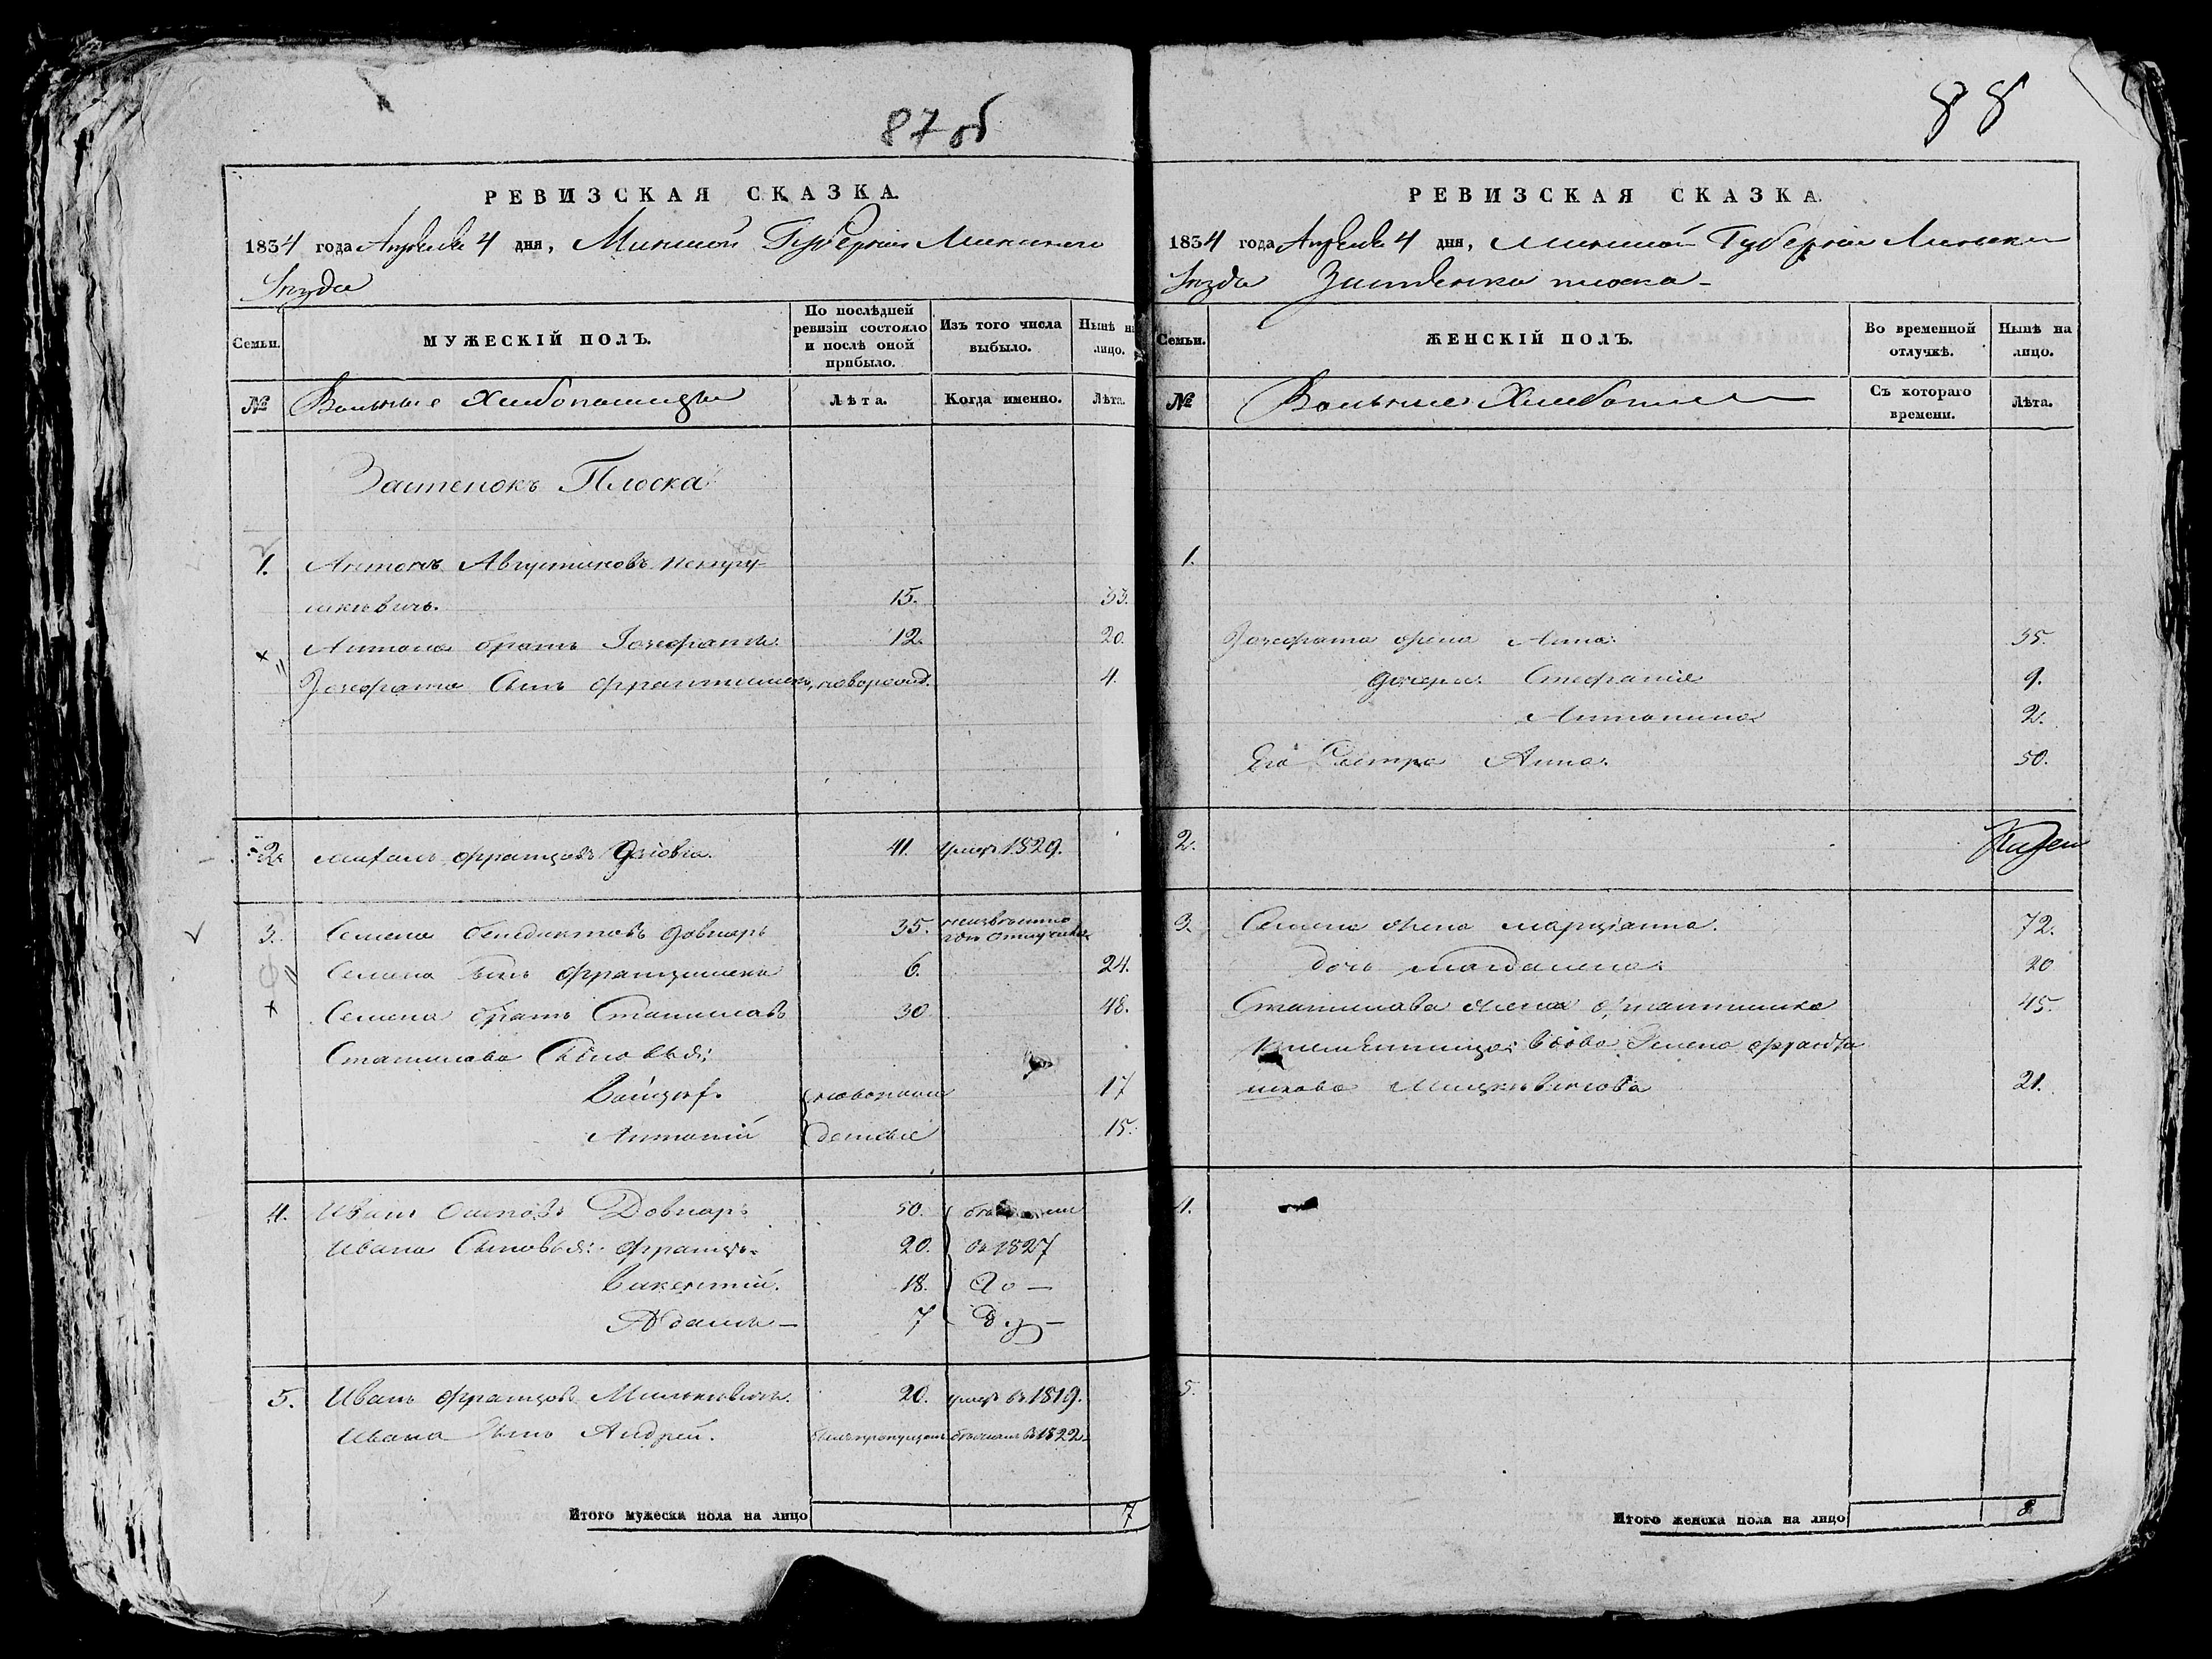 87 об
РЕВИЗСКАЯ СКАЗКА.
1834 года Апреля 4 дня, Минской Губернии Минскаго
Уезда
Семьи.
МУЖЕСКІЙ ПОЛЪ.
По послѣдней ревизіи состояло и послѣ оной прибыло.
Изъ того числа выбыло.
Нынѣ на лицо.
№
Вольные Хлебопашцы
Лѣта.
Когда именно.
Лѣта.
Застенокъ Плоска
1. Антонъ Августиновъ
15. 33.
Антона братъ Іозефатъ 12. 20.
Іозефата сынъ Францишекъ, новорожд. 4.
2. Михаилъ Францовъ 41. умеръ 1829.
3. Семенъ Бенедиктовъ Довнаръ 35. неизвестно
где отлучился
Семена сынъ Францишекъ 6. 24.
Семена братъ Станиславъ 30 48.
Станислава Сыновья:
Войцех. новорож 17
Антоній денные 15.
4. Иванъ Осиповъ Довнаръ 50.
Ивана Сыновья: Францъ 20. въ 1827
Викентій. 18. до —
Адамъ — 7
5. Иванъ Францовъ Милькевичъ. 20. умеръ въ 1819.
Ивана сынъ Андрей. былъ пропущенъ въ 1822
Итого мужеска пола на лицо 7
88
РЕВИЗСКАЯ СКАЗКА.
1834 года Апреля 4 дня, Минской Губернии Минскаго
Уезда Застенка плоска —
Семьи.
ЖЕНСКІЙ ПОЛЪ.
Во временной отлучкѣ.
Нынѣ на лицо.
№
Вольные
Съ котораго времени.
Лѣта.
1.
Іозефата жена Анна 35.
дочери Стефанія 9.
Антонина 2.
Его Сестра Анна 50.
2.
3. Семена жена Марціанна. 72.
дочь Магдалена 20
Станислава жена 45.
вдова
21.
4.
5.
Итого женска пола на лицо 8